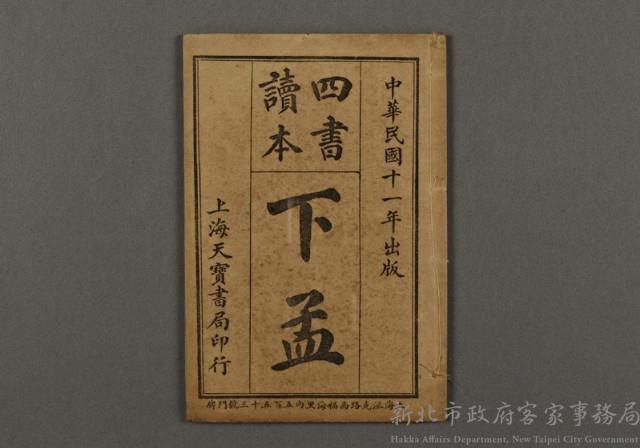 中華民國十一年出版
四書
讀本
下孟
上海天寶書局印行
路高福海里內五百五十三號門牌
新北市政府客家事務局
Hakka Affairs Department, New Taipei City Government